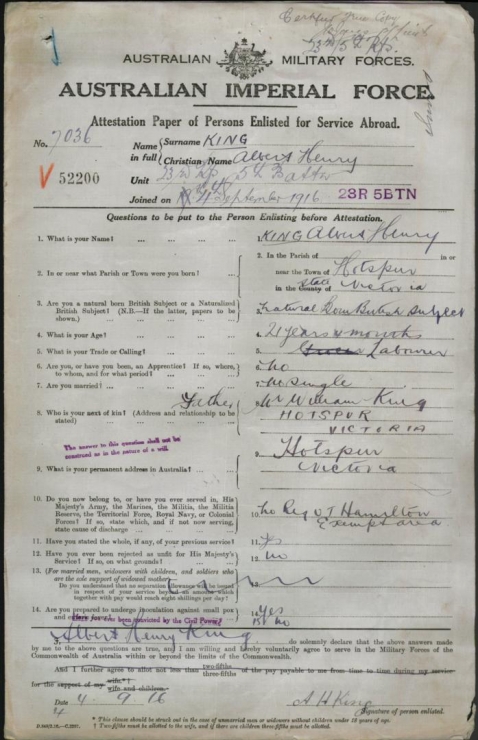 Certified True Copy
23rd/5th Rfs.
AUSTRALIAN MILITARY FORCES.
AUSTRALIAN IMPERIAL FORCE.
Attestation Paper of Persons Enlisted for Service Abroad.
No. 7036
Name in full { Surname KING
Christian Name Albert Henry
V 52200
Unit 23rd Rfs 5th Battn
Joined on 4th September 1916 23R 5BTN
Questions to be put to the Person Enlisting before Attestation.
1. What is your Name? ... ... ... 1. KING Albert Henry
2. In or near what Parish or Town were you born? ... 2. In the Parish of in or
near the Town of Hotspur
in the County of State Victoria
3. Are you a natural born British Subject or a Naturalized
British Subject? (N.B.—If the latter, papers to be
shown.) ... 3. Natural Born British Subject
4. What is your Age? ... ... 4. 21 years 4 months
5. What is your Trade or Calling? ... ... 5. Labourer
6. Are you, or have you been, an Apprentice? If so, where,
to whom, and for what period? ... ... 6. No
7. Are you married? ... ... 7. No Single
8. Who is your next of kin? (Address and relationship to be
stated) Father 8. Mr William King
HOTSPUR
VICTORIA
The answer to this question shall not be
construed as in the nature of a will.
9. What is your permanent address in Australia? ... 9. Hotspur
Victoria
10. Do you now belong to, or have you ever served in, His
Majesty's Army, the Marines, the Militia, the Militia
Reserve, the Territorial Force, Royal Navy, or Colonial
Forces? If so, state which, and if not now serving,
state cause of discharge ... ... 10. No Reg at Hamilton
Exempt area
11. Have you stated the whole, if any, of your previous service? 11. Yes
12. Have you ever been rejected as unfit for His Majesty's
Service? If so, on what grounds? ... 12. No
13. (For married men, widowers with children, and soldiers who
are the sole support of widowed mother)
Do you understand that no separation allowance will be issued
in respect of your service beyond an amount which
together with pay would reach eight shillings per day? 13.
14. Are you prepared to undergo inoculation against small pox
and enteric fever? 14. Yes
Have you ever been convicted by the Civil Power? 15. No
I, Albert Henry King do solemnly declare that the above answers made
by me to the above questions are true, and I am willing and hereby voluntarily agree to serve in the Military Forces of the
Commonwealth of Australia within or beyond the limits of the Commonwealth.
And I further agree to allot not less than two-fifths three-fifths of the pay payable to me from time to time during my service
for the support of my wife wife and children
Date 4. 9. 16 A H King
Signature of person enlisted.
* This clause should be struck out in the case of unmarried men or widowers without children under 18 years of age.
† Two-fifths must be allotted to the wife, and if there are children three-fifths must be allotted.